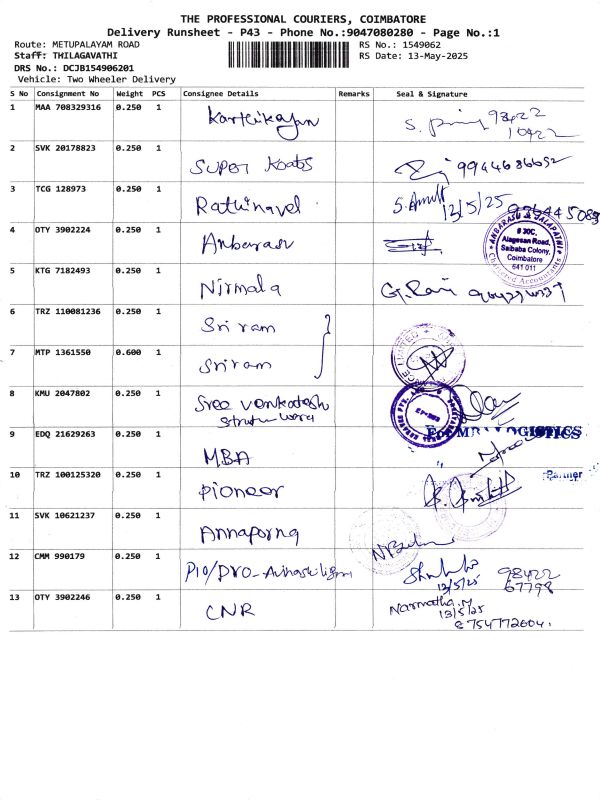 THE PROFESSIONAL COURIERS, COIMBATORE
Delivery Runsheet - P43 - Phone No.:9047080280 - Page No.:1
Route: METUPALAYAM ROAD RS No.: 1549062
Staff: THILAGAVATHI RS Date: 13-May-2025
DRS No.: DCJB154906201
Vehicle: Two Wheeler Delivery
S No Consignment No Weight PCS Consignee Details Remarks Seal & Signature
1 MAA 708329316 0.250 1 Karthikeyan 98422
10922
2 SVK 20178823 0.250 1 Super 9944636652
3 TCG 128973 0.250 1 Rathinavel S. Amutt
13/5/25
4 OTY 3902224 0.250 1 Anbarasu
ANBARASU & JALAPATHI
# 30C,
Alagesan Road,
Saibaba Colony,
Coimbatore
641 011
Chartered Accountants
5 KTG 7182493 0.250 1 Nirmala
6 TRZ 110081236 0.250 1 Sri ram
7 MTP 1361550 0.600 1 Sriram
8 KMU 2047802 0.250 1 Sree Venkatesh
9 EDQ 21629263 0.250 1 MBA
LOGISTICS
Partner
10 TRZ 100125320 0.250 1 Pioneer
11 SVK 10621237 0.250 1 Annaporna
12 CMM 990179 0.250 1 PIO/DRO-
13/5/25 98422
67798
13 OTY 3902246 0.250 1 CNR Narmatha.M
13/5/25
8754772604.